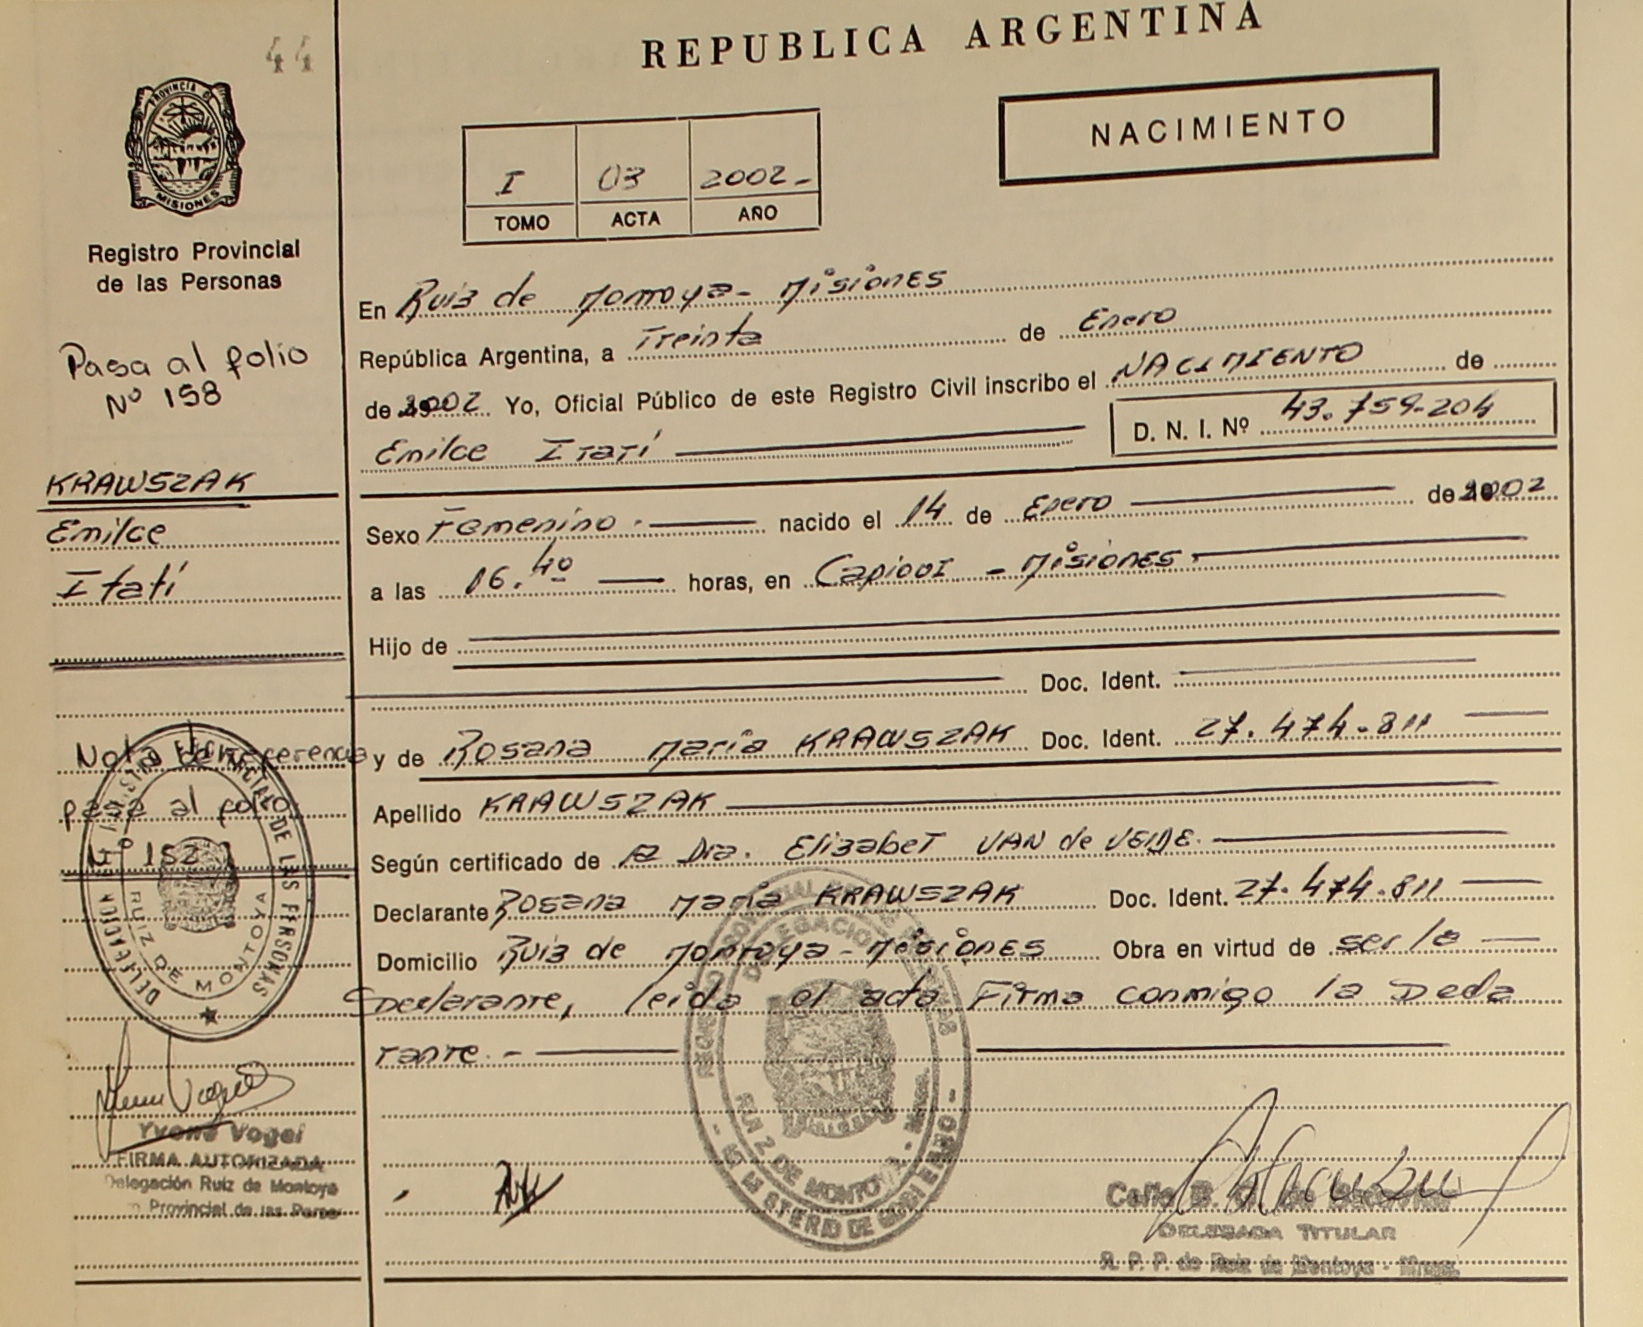 44
REPUBLICA ARGENTINA
PROVINCIA DE
MISIONES
NACIMIENTO
I 03 2002-
TOMO ACTA AÑO
Registro Provincial
de las Personas
Pasa al folio
Nº 158
KRAWSZAK
Emilce
Itatí
Nota de referencia
pasa al folio
Nº 152
En Ruiz de Montoya - Misiones
República Argentina, a Treinta de Enero
de 2002. Yo, Oficial Público de este Registro Civil inscribo el NACIMIENTO de
Emilce Itatí D. N. I. Nº 43.759.204
Sexo Femenino.- nacido el 14 de Enero de 2002
a las 16.40 horas, en Capioví - Misiones.
Hijo de
Doc. Ident.
y de Rosana María KRAWSZAK Doc. Ident. 27.474.811
Apellido KRAWSZAK
Según certificado de la Dra. Elizabet VAN de VELDE.
Declarante Rosana María KRAWSZAK Doc. Ident. 27.474.811
Domicilio Ruiz de Montoya - Misiones Obra en virtud de ser la
Declarante, leída el acta Firma conmigo la Decla
rante.-
DELEGACION
RUIZ DE MONTOYA
DE LAS PERSONAS
DELEGACION
RUIZ DE MONTOYA
MINISTERIO DE GOBIERNO
Yvone Vogel
FIRMA AUTORIZADA
Delegación Ruiz de Montoya
Provincial de las Perso
DELEGADA TITULAR
R. P. P. de Ruiz de Montoya - Mnes.